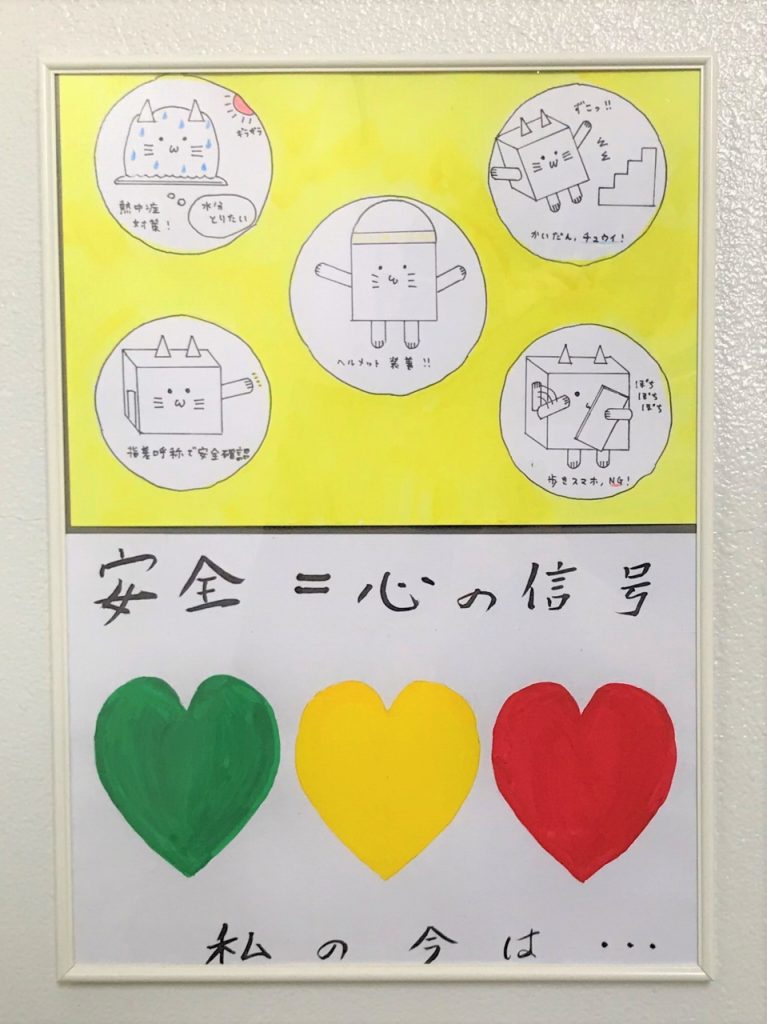 ギラギラ
熱中症
対策!
水分
とりたい
ずこっ!!
かいだん、チュウイ!
ヘルメット 装着 !!
指差呼称で安全確認
ぽち
ぽち
ぽち
歩きスマホ、NG!
安全=心の信号
私の今は・・・